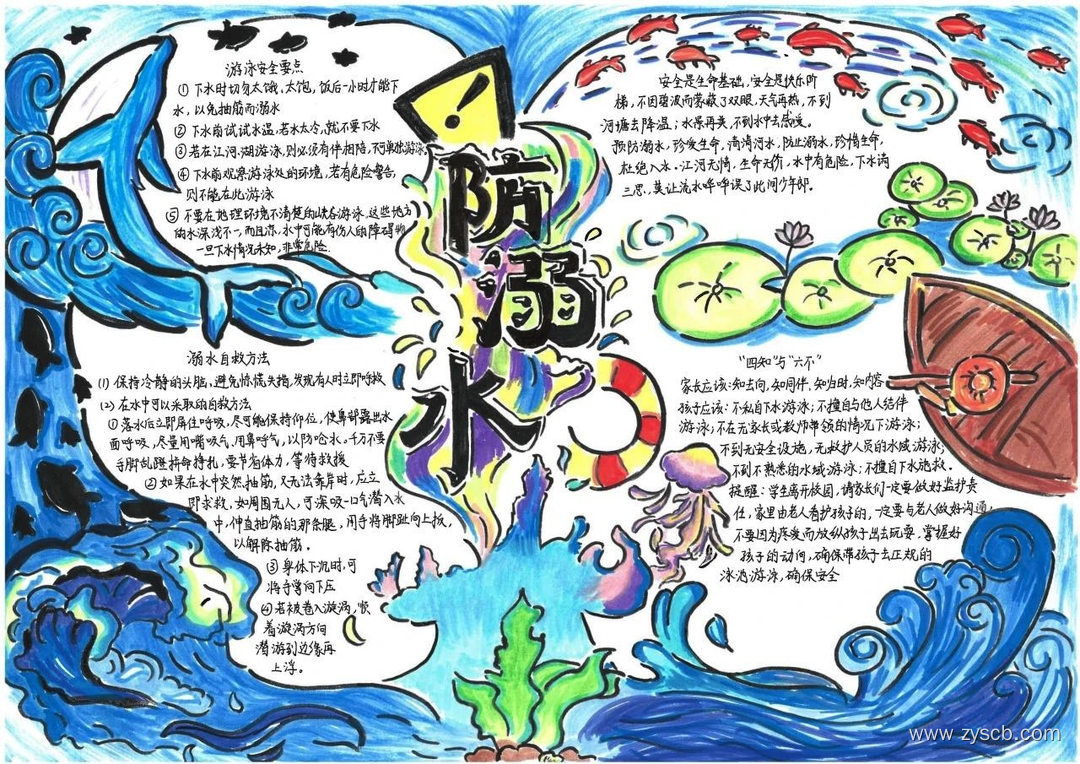 游泳安全要点
① 下水时切勿太饿、太饱,饭后一小时才能下
水,以免抽筋而溺水
② 下水前试试水温,若水太冷,就不要下水
③ 若在江、河、湖游泳,则必须有伴相陪,不可单独游泳
④ 下水前观察游泳处的环境,若有危险警告,
则不能在此游泳
⑤ 不要在地理环境不清楚的峡谷游泳,这些地方
的水深浅不一,而且凉,水中可能有伤人的障碍物
一旦下水情况未知,非常危险.
安全是生命基础,安全是快乐阶
梯,不因碧波而蒙蔽了双眼,天气再热,不到
河塘去降温;水源再美,不到水中去感受。
预防溺水,珍爱生命,滴滴河水,防止溺水,珍惜生命,
杜绝入水.江河无情.生命无价.水中有危险,下水滴
三思.莫让流水哗哗误了此间少年郎.
!
防
溺
水
溺水自救方法
(1) 保持冷静的头脑,避免惊慌失措,发现有人时立即呼救
(2) 在水中可以采取的自救方法
① 落水后立即屏住呼吸,尽可能保持仰位,使鼻部露出水
面呼吸,尽量用嘴吸气,用鼻呼气,以防呛水。千万不要
手脚乱蹬拼命挣扎,要节省体力,等待救援
② 如果在水中突然抽筋,又无法靠岸时,应立
即求救,如周围无人,可深吸一口气潜入水
中,伸直抽筋的那条腿,用手将脚趾向上扳,
以解除抽筋。
③ 身体下沉时,可
将手掌向下压
④ 若被卷入漩涡,顺
着漩涡方向
潜游到边缘再
上浮。
“四知”与“六不”
家长应该:知去向,知同伴,知归时,知内容
孩子应该:不私自下水游泳;不擅自与他人结伴
游泳;不在无家长或教师带领的情况下游泳;
不到无安全设施,无救护人员的水域游泳;
不到不熟悉的水域游泳;不擅自下水施救。
提醒:学生离开校园,请家长们一定要做好监护责
任,家里由老人看护孩子的,一定要与老人做好沟通,
不要因为疼爱而放纵孩子出去玩耍,掌握好
孩子的动向,确保带孩子去正规的
泳池游泳,确保安全
www.zyscb.com